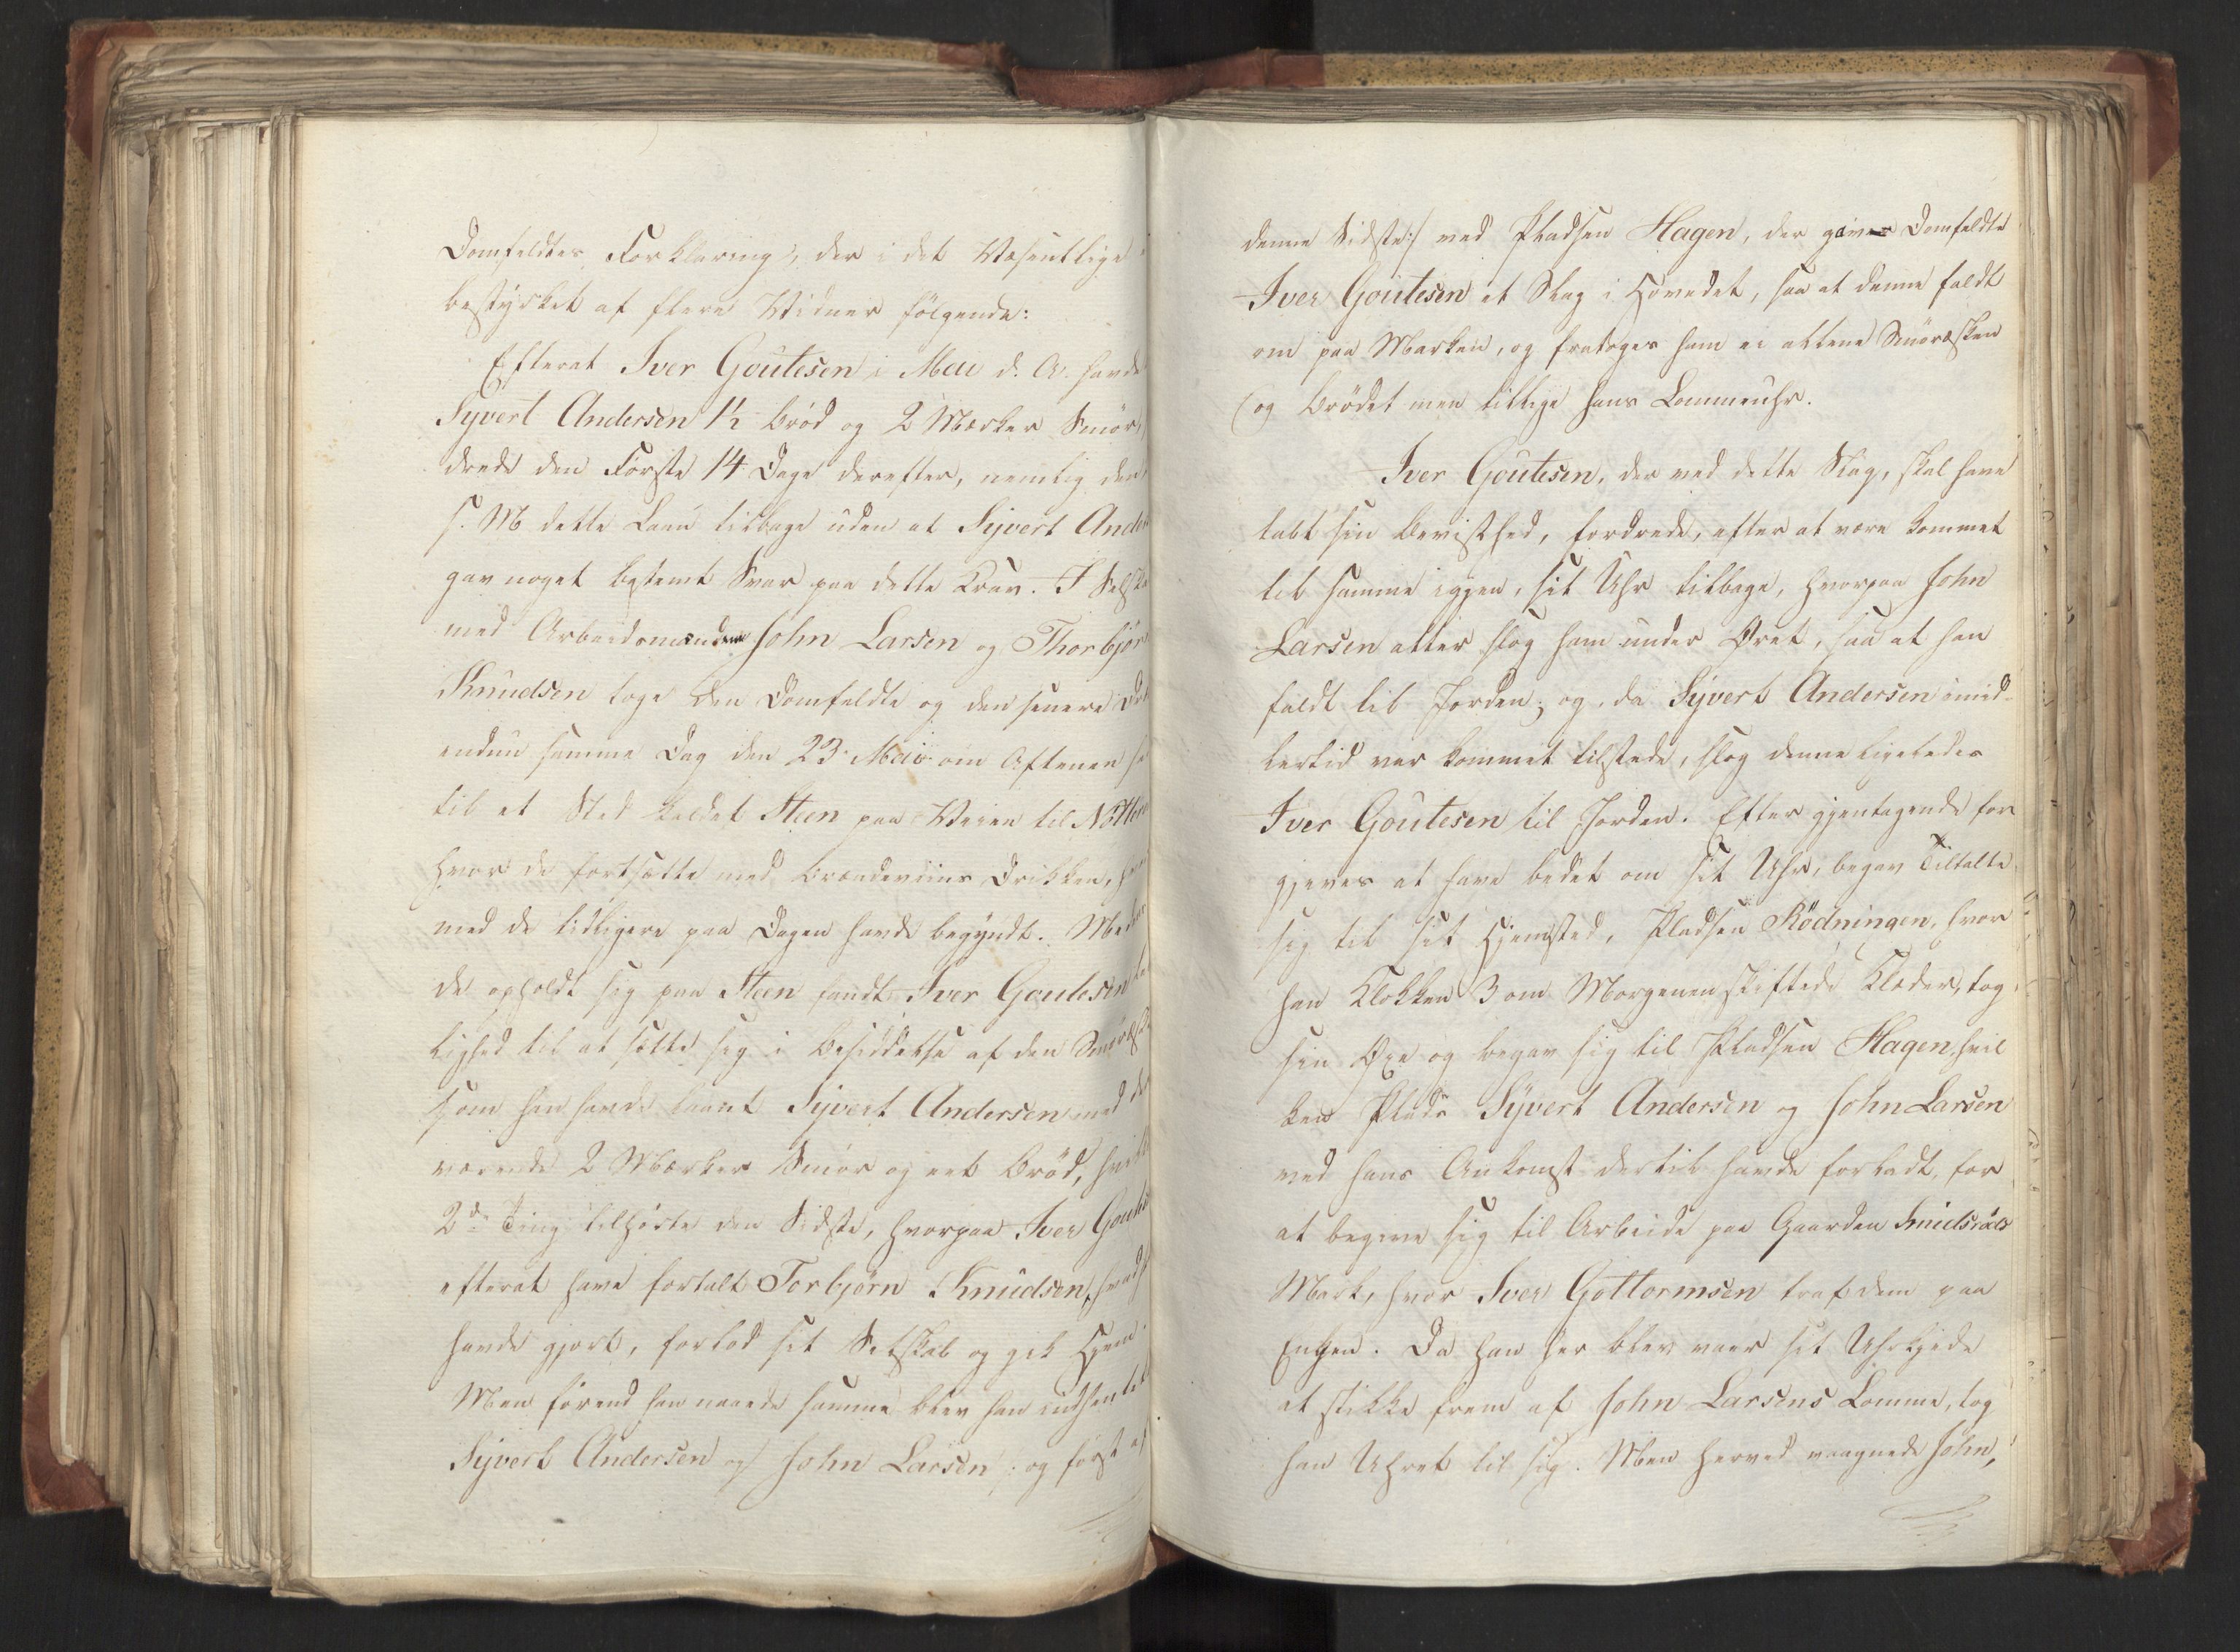 Domfeldtes Forklaring, der i det Væsentlige
bestyrket af flere Vidner følgende:
Efterat Iver Goutesen i Mai d. A. havde
Syvert Andersen 1½ Brød og 2 Mærker Smør,
drede den Første 14 Dage derefter, nemlig den
s. M dette Laan tilbage uden at Syvert Ander
gav noget bestemt Svar paa dette Krav. I Selska
med Arbeidsmændene John Larsen og Thorbjør
Knudsen toge den Domfeldte og den senere
endnu samme Dag den 23 Mai om Aftenen
til et Sted kaldet Steen paa Veien til
hvor de fortsatte med Brændeviins Drikken,
med de tidligere paa Dagen havde begyndt. Medens
de opholdt sig paa Steen fandt Iver Goutesen
lighed til at sætte sig i Besiddelse af den Smøræsk
som han havde laant Syvert Andersen med de
værende 2 Mærker Smør og eet Brød, hvilke
2de Ting tilhørte den Sidste, hvorpaa Iver Goutes
efterat have fortalt Torbjørn Knudsen, hvad
havde gjort, forlod sit Selskab og gik Hjem.
Men førend han naaede samme blev han indhentet
Syvert Andersen og John Larsen, og først af
denne Sidste :/ ved Pladsen Hagen, der gives Domfeldte
Iver Goutesen et Slag i Hovedet, saa at denne faldt
om paa Marken, og fratoges ham ei alene Smøræsken
og Brødet men tillige hans Lommeuhr.
Iver Goutesen, der ved dette Slag, skal have
tabt sin Bevisthed, fordrede, efter at være kommet
til samme igjen, sit Uhr tilbage, hvorpaa John
Larsen atter slog ham under Øret, saa at han
faldt til Jorden; og, da Syvert Andersen imid-
lertid var kommet tilstede, slog denne ligeledes
Iver Goutesen til Jorden. Efter gjentagende for
gjeves at have bedet om sit Uhr, begav Tiltalte
sig til sit Hjemsted, Pladsen Rödningen, hvor
han Klokken 3 om Morgenen skiftede Klæder, tog
sin Øxe og begav sig til Pladsen Hagen, hvil
ken Plads Syvert Andersen og John Larsen
ved hans Ankomst dertil havde forladt, for
at begive sig til Arbeide paa Gaarden Smidsröds
Mark, hvor Iver Gottormsen traf dem paa
Engen. Da han her blev vaer sit Uhrkjede
at stikke frem af John Larsens Lomme, tog
han Uhret til sig. Men herved vaagnede John,